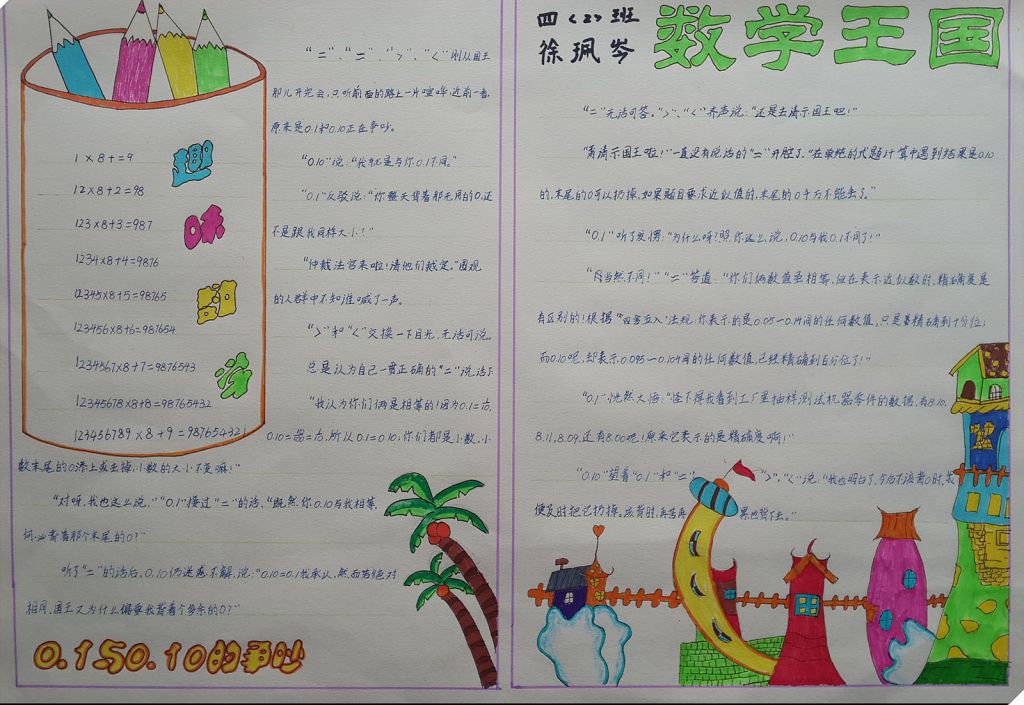 1×8+=9
12×8+2=98
123×8+3=987
1234×8+4=9876
12345×8+5=98765
123456×8+6=987654
1234567×8+7=9876543
12345678×8+8=98765432
123456789×8+9=987654321
趣
味
"="、"="、">"、"<"刚从国王
那儿开完会,只听前面的路上一片喧哗,近前一看,
原来是0.1和0.10正在争吵。
"0.10"说:"我就是与你0.1不同。"
"0.1"反驳说:"你整天背着那无用的0,还
不是跟我同样大小!"
"仲裁法官来啦!请他们裁定。"围观
的人群中不知谁喊了一声。
">"和"<"交换一下目光,无话可说。
总是认为自己一贯正确的"="说话了
"我认为你们俩是相等的!因为0.1=
0.10= ,所以0.1=0.10;你们都是小数,小
数末尾的0添上或去掉,小数的大小不变嘛!"
"对呀,我也这么说,""0.1"接过"="的话,"既然你0.10与我相等,
何必背着那个末尾的0?"
听了"="的话后,0.10仍迷惑不解,说:"0.10=0.1我承认,然而若绝对
相同,国王又为什么偏要我背着个多余的0?"
0.1与0.10的争吵
四<2>班
徐珮岑
数学王国
"="无话可答。">"、"<"齐声说:"还是去请示国王吧!"
"甭请示国王啦!"一直没有说话的"="开腔了,"在单纯的式题计算中遇到结果是0.10
的,末尾的0可以扔掉,如果题目要求近似值的,末尾的0千万不能丢了。"
"0.1"听了发愣:"为什么呀?照你这么说,0.10与我0.1不同了!"
"当然不同!""="答道:"你们俩数值虽相等,但在表示近似数时,精确度是
有区别的!根据"四舍五入"法规:你表示的是0.05—0.14间的任何数值,只是精确到十分位;
而0.10呢,却表示0.095—0.104间的任何数值,已经精确到百分位了!"
"0.1"恍然大悟:"怪不得我看到工厂里抽样测试机器零件的数据,有8.10,
8.11,8.09,还有8.00呢!原来它表示的是精确度啊!"
"0.10"望着"0.1"和"="、">"、"<"说:"我也明白了,今后不该背0时,我
便及时把它扔掉。该背时,再苦再累也背下去。"